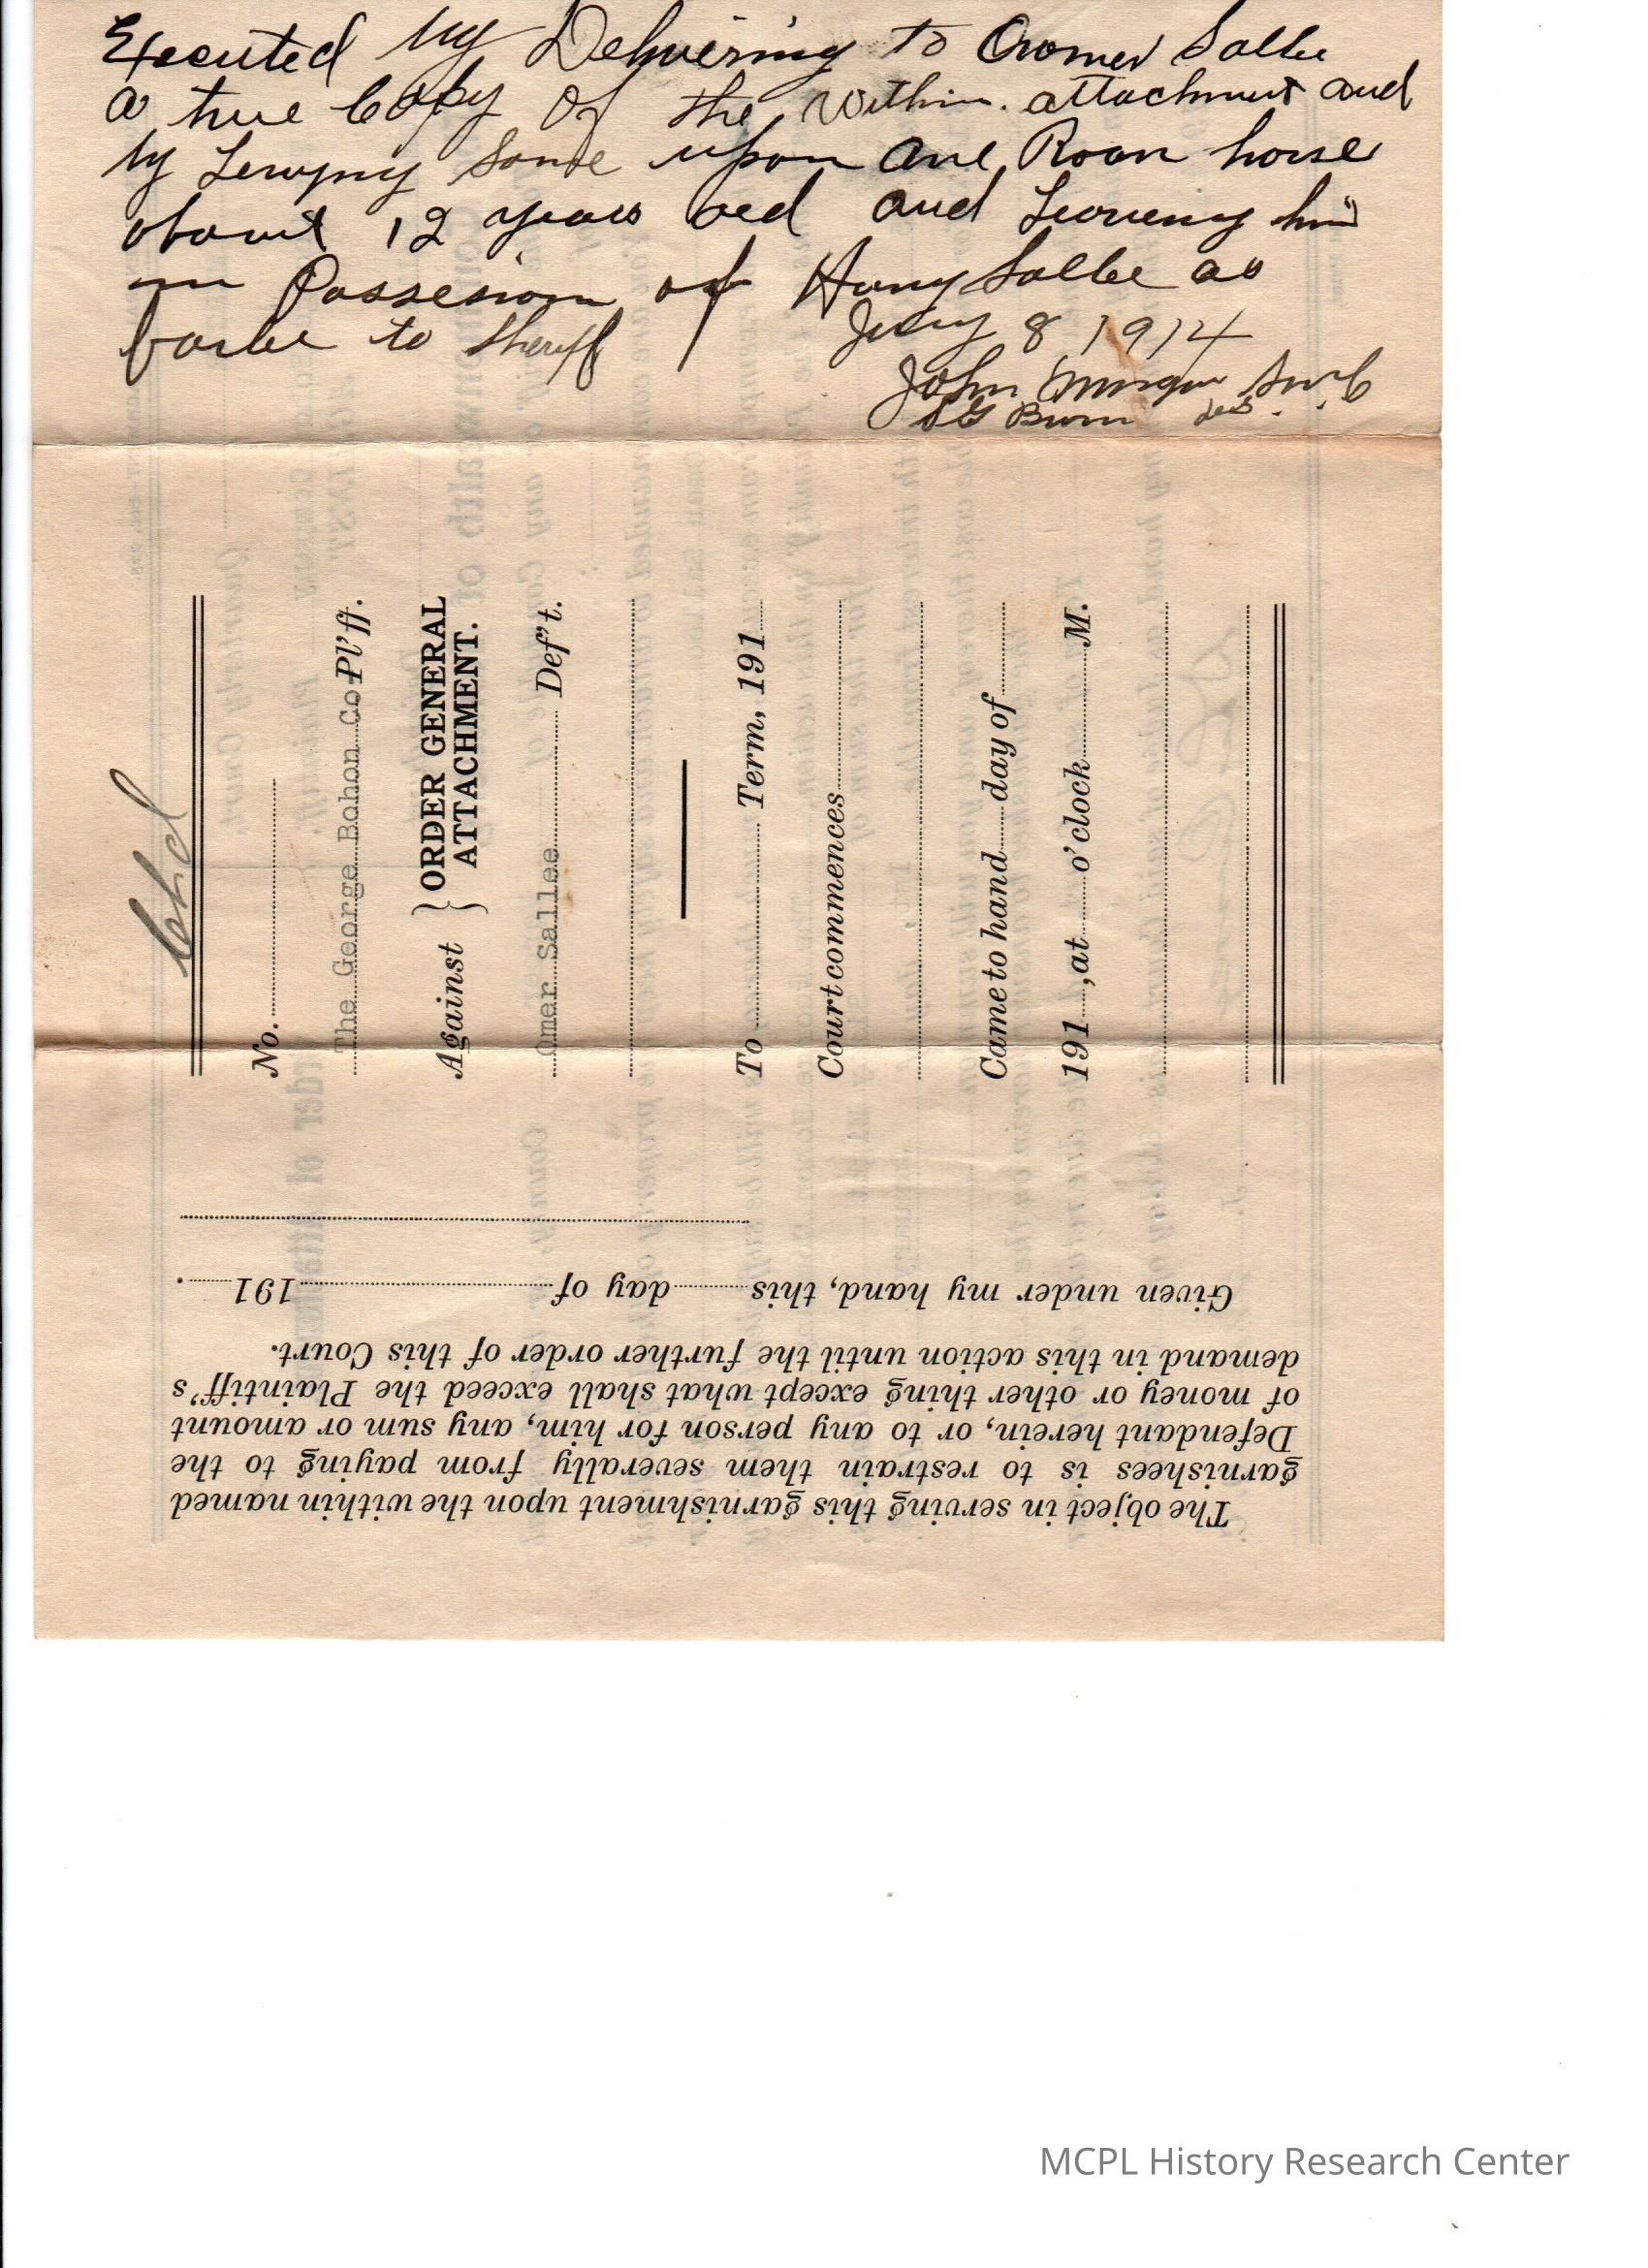 Executed by Delivering to Oromer Sallee
a true Copy of the Within attachment and
by Levying Same upon one Roan horse
about 12 years old and Leaveing him
in Possesion of Harry Sallee as
to Sheriff
July 8 1914
John Morgan
D G Burn
No.
The George Bohon Co Pl'ff.
Against } ORDER GENERAL
ATTACHMENT.
Omer Sallee Def't.
To Term, 191
Court commences
Came to hand day of
191 , at o'clock M.
The object in serving this garnishment upon the within named
garnishees is to restrain them severally from paying to the
Defendant herein, or to any person for him, any sum or amount
of money or other thing except what shall exceed the Plaintiff's
demand in this action until the further order of this Court.
Given under my hand, this day of 191 .
MCPL History Research Center